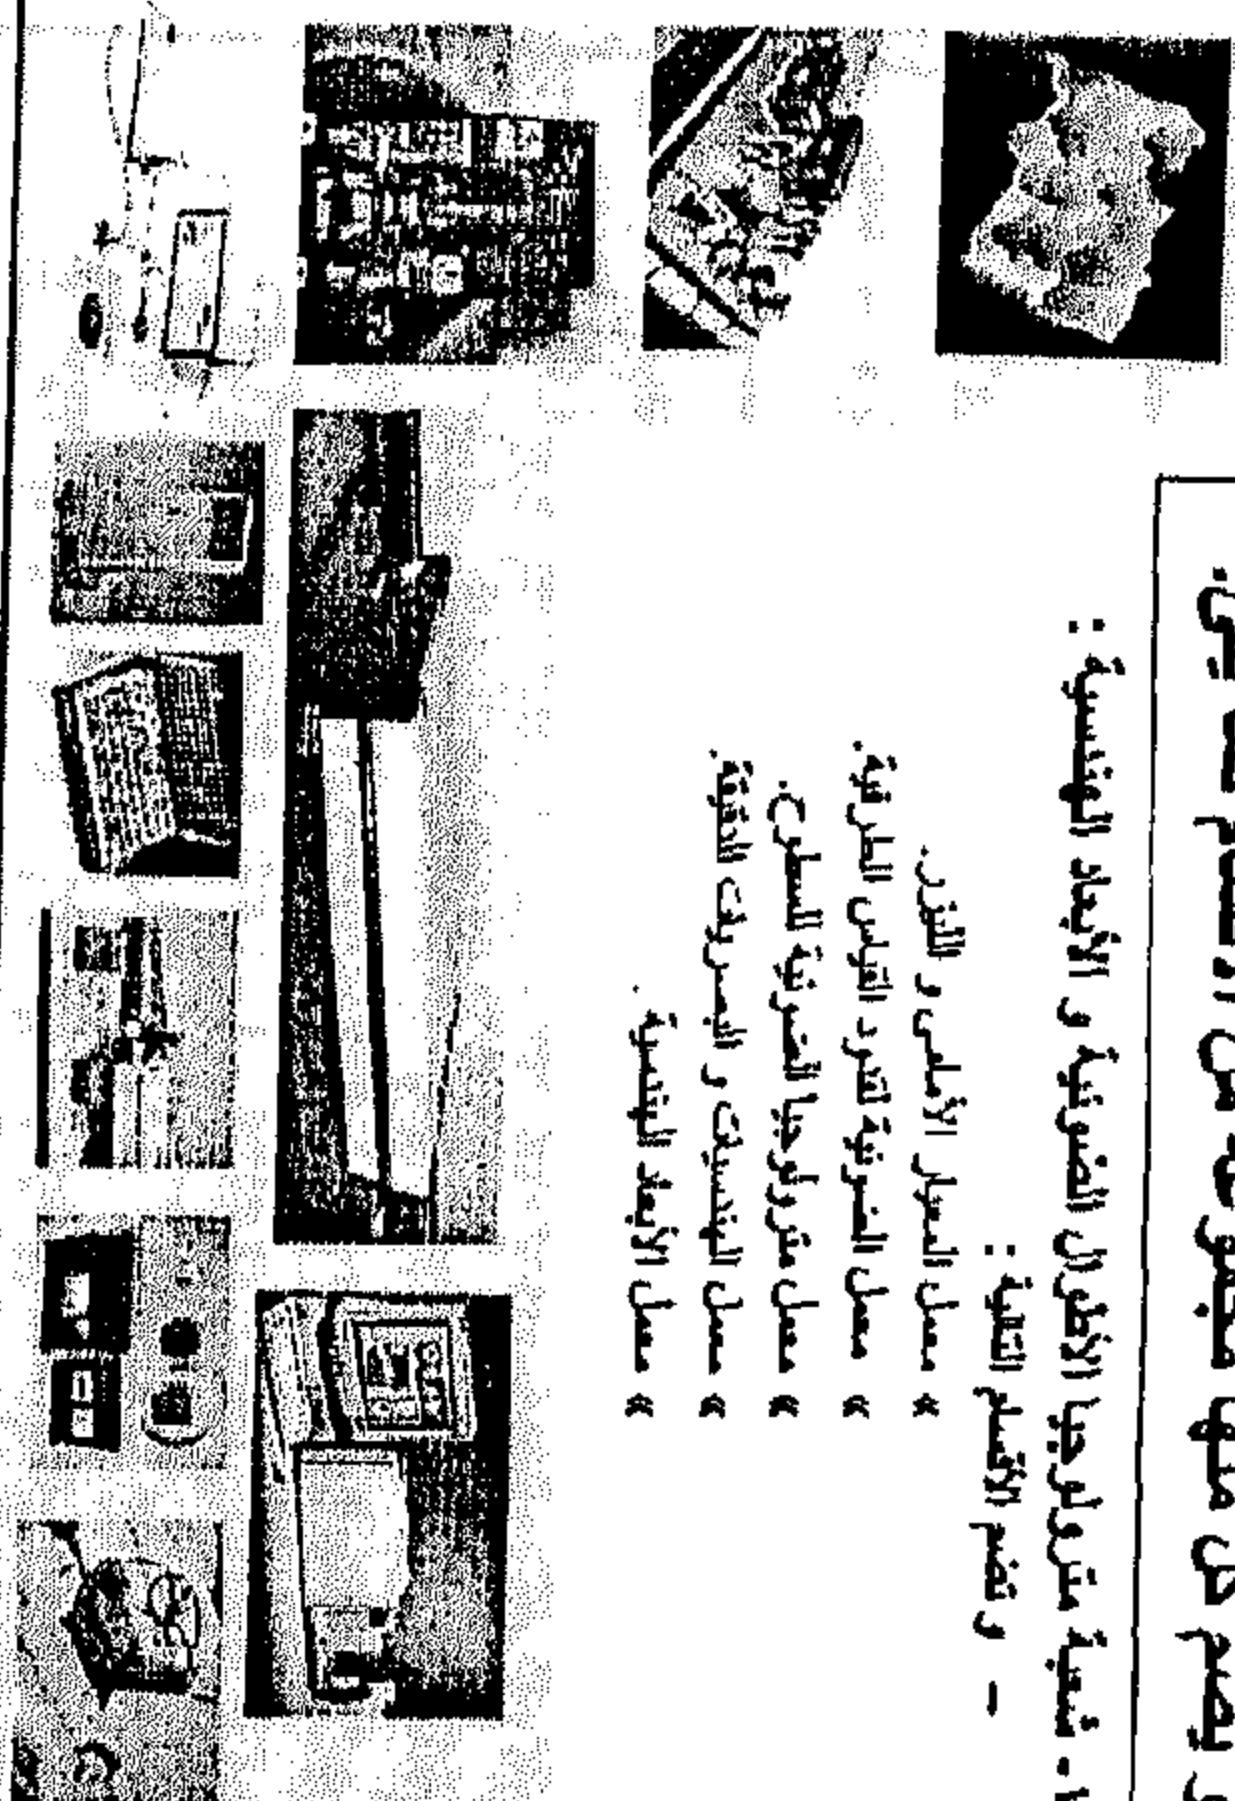 و يضم كل منها مجموعة من الأقسام
١- شعبة مترولوجيا الأطوال الضوئية و الأبعاد الهندسية :
– و تضم الأقسام التالية :
» معمل المعيار الأصلى و الليزر.
» معمل الضوئية لقدود القياس الطرفية.
» معمل مترولوجيا الضوئية للسطوح.
» معمل الهندسيات و البصريات الدقيقة.
» معمل الأبعاد الهندسية .